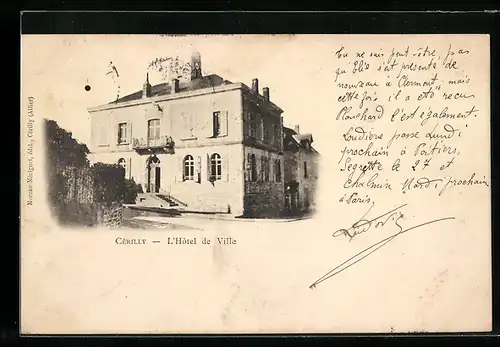 Moreau-Méténier, édit., Cérilly (Allier)
CÉRILLY — L'Hôtel de Ville
Tu ne sais peut être, pas
qu'Elie s'est présenté de
nouveau à Clermont, mais
cette fois il a été recu
Planchard l'est également
Loudière passe Lundi
prochain à Poitiers,
Segrette le 27 et
Chalmin Mardi prochain
à Paris,
Ludovic